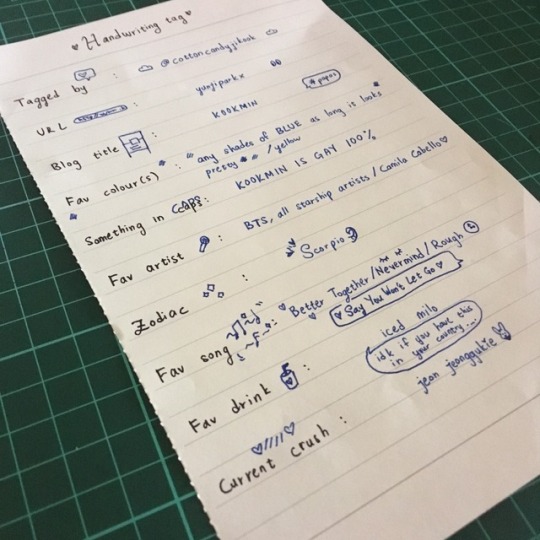 Handwriting tag
Tagged by : @cottoncandyjikook
URL : yunjiparkx
Blog title : KOOKMIN #papas
Fav colour(s) : any shades of BLUE as long is looks
pretty / yellow
Something in CAPS: KOOKMIN IS GAY 100%
Fav artist : BTS, all starship artists / Camila Cabello
Zodiac : Scorpio
Fav song : Better Together/Nevermind/Rough
Say You Won't Let Go
Fav drink : iced milo
idk if you have this
in your country...
Current crush : jeon jeonggukie